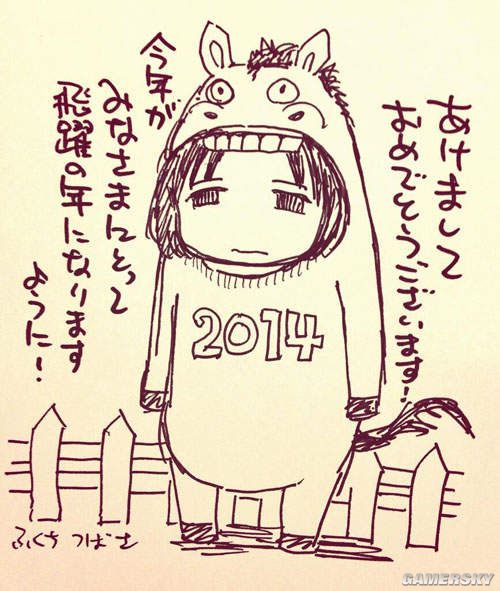 あけまして
おめでとうございます!
今年が
みなさまにとって
飛躍の年になります
ように!
2014
ふくち つばさ
GAMERSKY